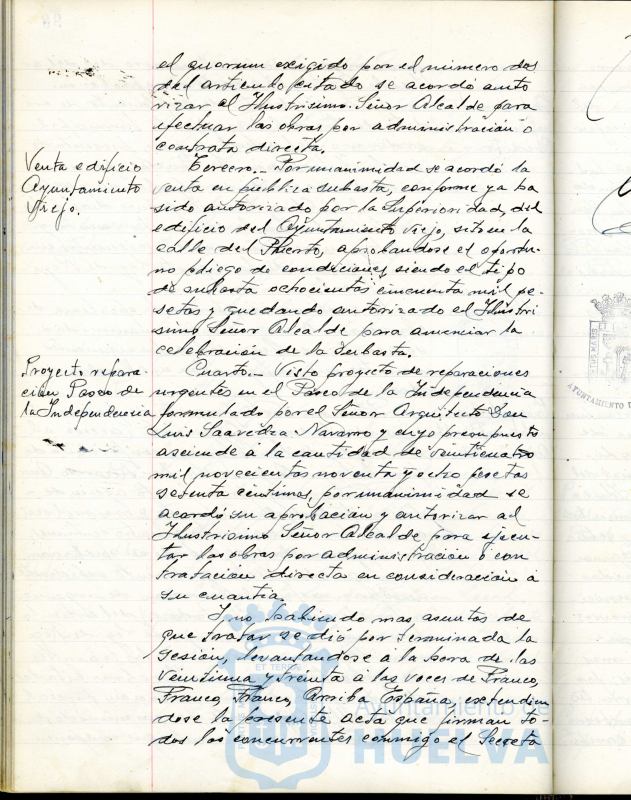 el quorum exigido por el número dos
del artículo citado se acordó auto
rizar al Ilustrísimo Señor Alcalde para
efectuar las obras por administración o
contrata directa.
Venta edificio
Ayuntamiento
Viejo.
Tercero.- Por unanimidad se acordó la
venta en pública subasta, conforme ya ha
sido autorizado por la Superioridad, del
edificio del Ayuntamiento Viejo, sito en la
calle del Puerto, aprobandose el oportu-
no pliego de condiciones, siendo el tipo
de subasta ochocientas cincuenta mil pe-
setas y quedando autorizado el Ilustri
simo Señor Alcalde para anunciar la
celebración de la subasta.
Proyecto repara-
cion Paseo de
la Independencia
Cuarto.- Visto proyecto de reparaciones
urgentes en el Paseo de la Independencia
formulado por el Señor Arquitecto Don
Luis Saavedra Navarro y cuyo presupuesto
asciende á la cantidad de veinticuatro
mil novecientas noventa y ocho pesetas
setenta centimos, por unanimidad se
acordó su aprobación y autorizar al
Ilustrísimo Señor Alcalde para ejecu-
tar las obras por administración o con
tratación directa en consideración á
su cuantía.
Y no habiendo mas asuntos de
que tratar se dió por terminada la
sesión, levantandose á la hora de las
veintiuna y treinta á las voces de Franco,
Franco, Franco, Arriba España, extendien
dose la presente acta que firman to-
dos los concurrentes conmigo el Secreta
ET TERRA
Ayuntamiento de
HUELVA
AYUNTAMIENTO